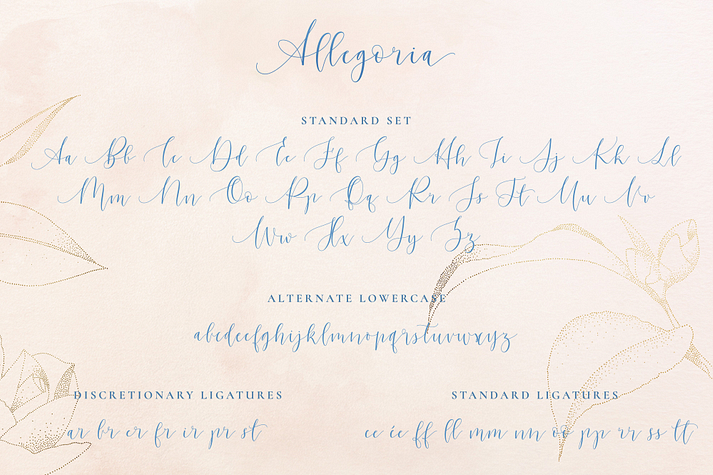 Allegoria
STANDARD SET
Aa Bb Cc Dd Ee Ff Gg Hh Ii Jj Kk Ll
Mm Nn Oo Pp Qq Rr Ss Tt Uu Vv
Ww Xx Yy Zz
ALTERNATE LOWERCASE
abcdeefghijklmnopqrstuvwxyz
DISCRETIONARY LIGATURES
STANDARD LIGATURES
ar br er fr ir pr st
ee ie ff ll mm nn oo pp rr ss tt